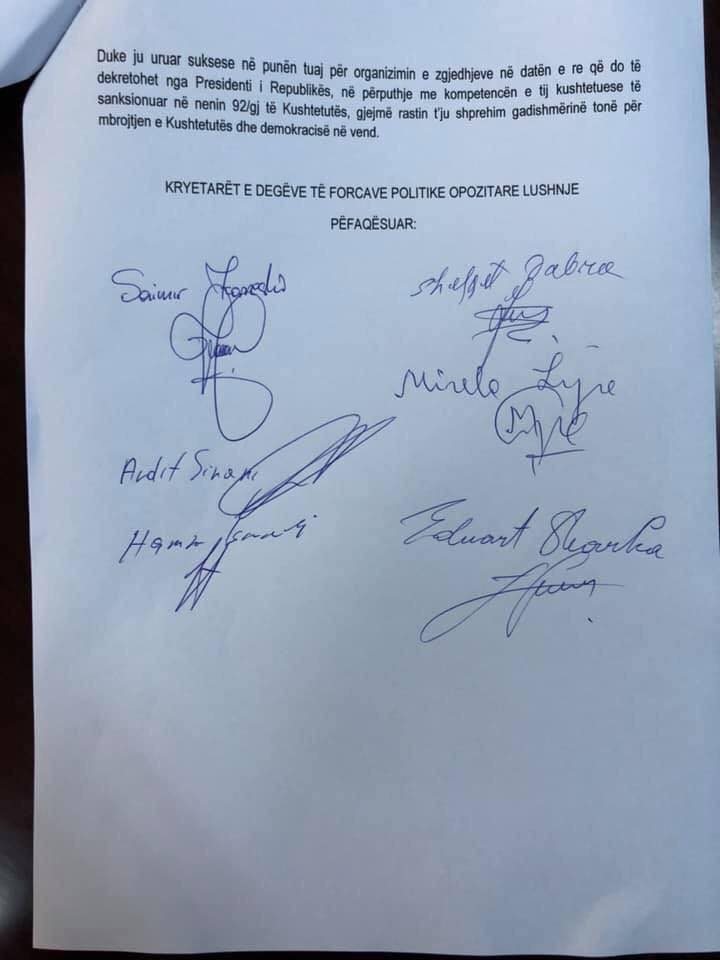 Duke ju uruar suksese në punën tuaj për organizimin e zgjedhjeve në datën e re që do të
dekretohet nga Presidenti i Republikës, në përputhje me kompetencën e tij kushtetuese të
sanksionuar në nenin 92/gj të Kushtetutës, gjejmë rastin t'ju shprehim gadishmërinë tonë për
mbrojtjen e Kushtetutës dhe demokracisë në vend.
KRYETARËT E DEGËVE TË FORCAVE POLITIKE OPOZITARE LUSHNJE
PËFAQËSUAR:
Saimir
Mirela
Sinani
Eduart Skarka